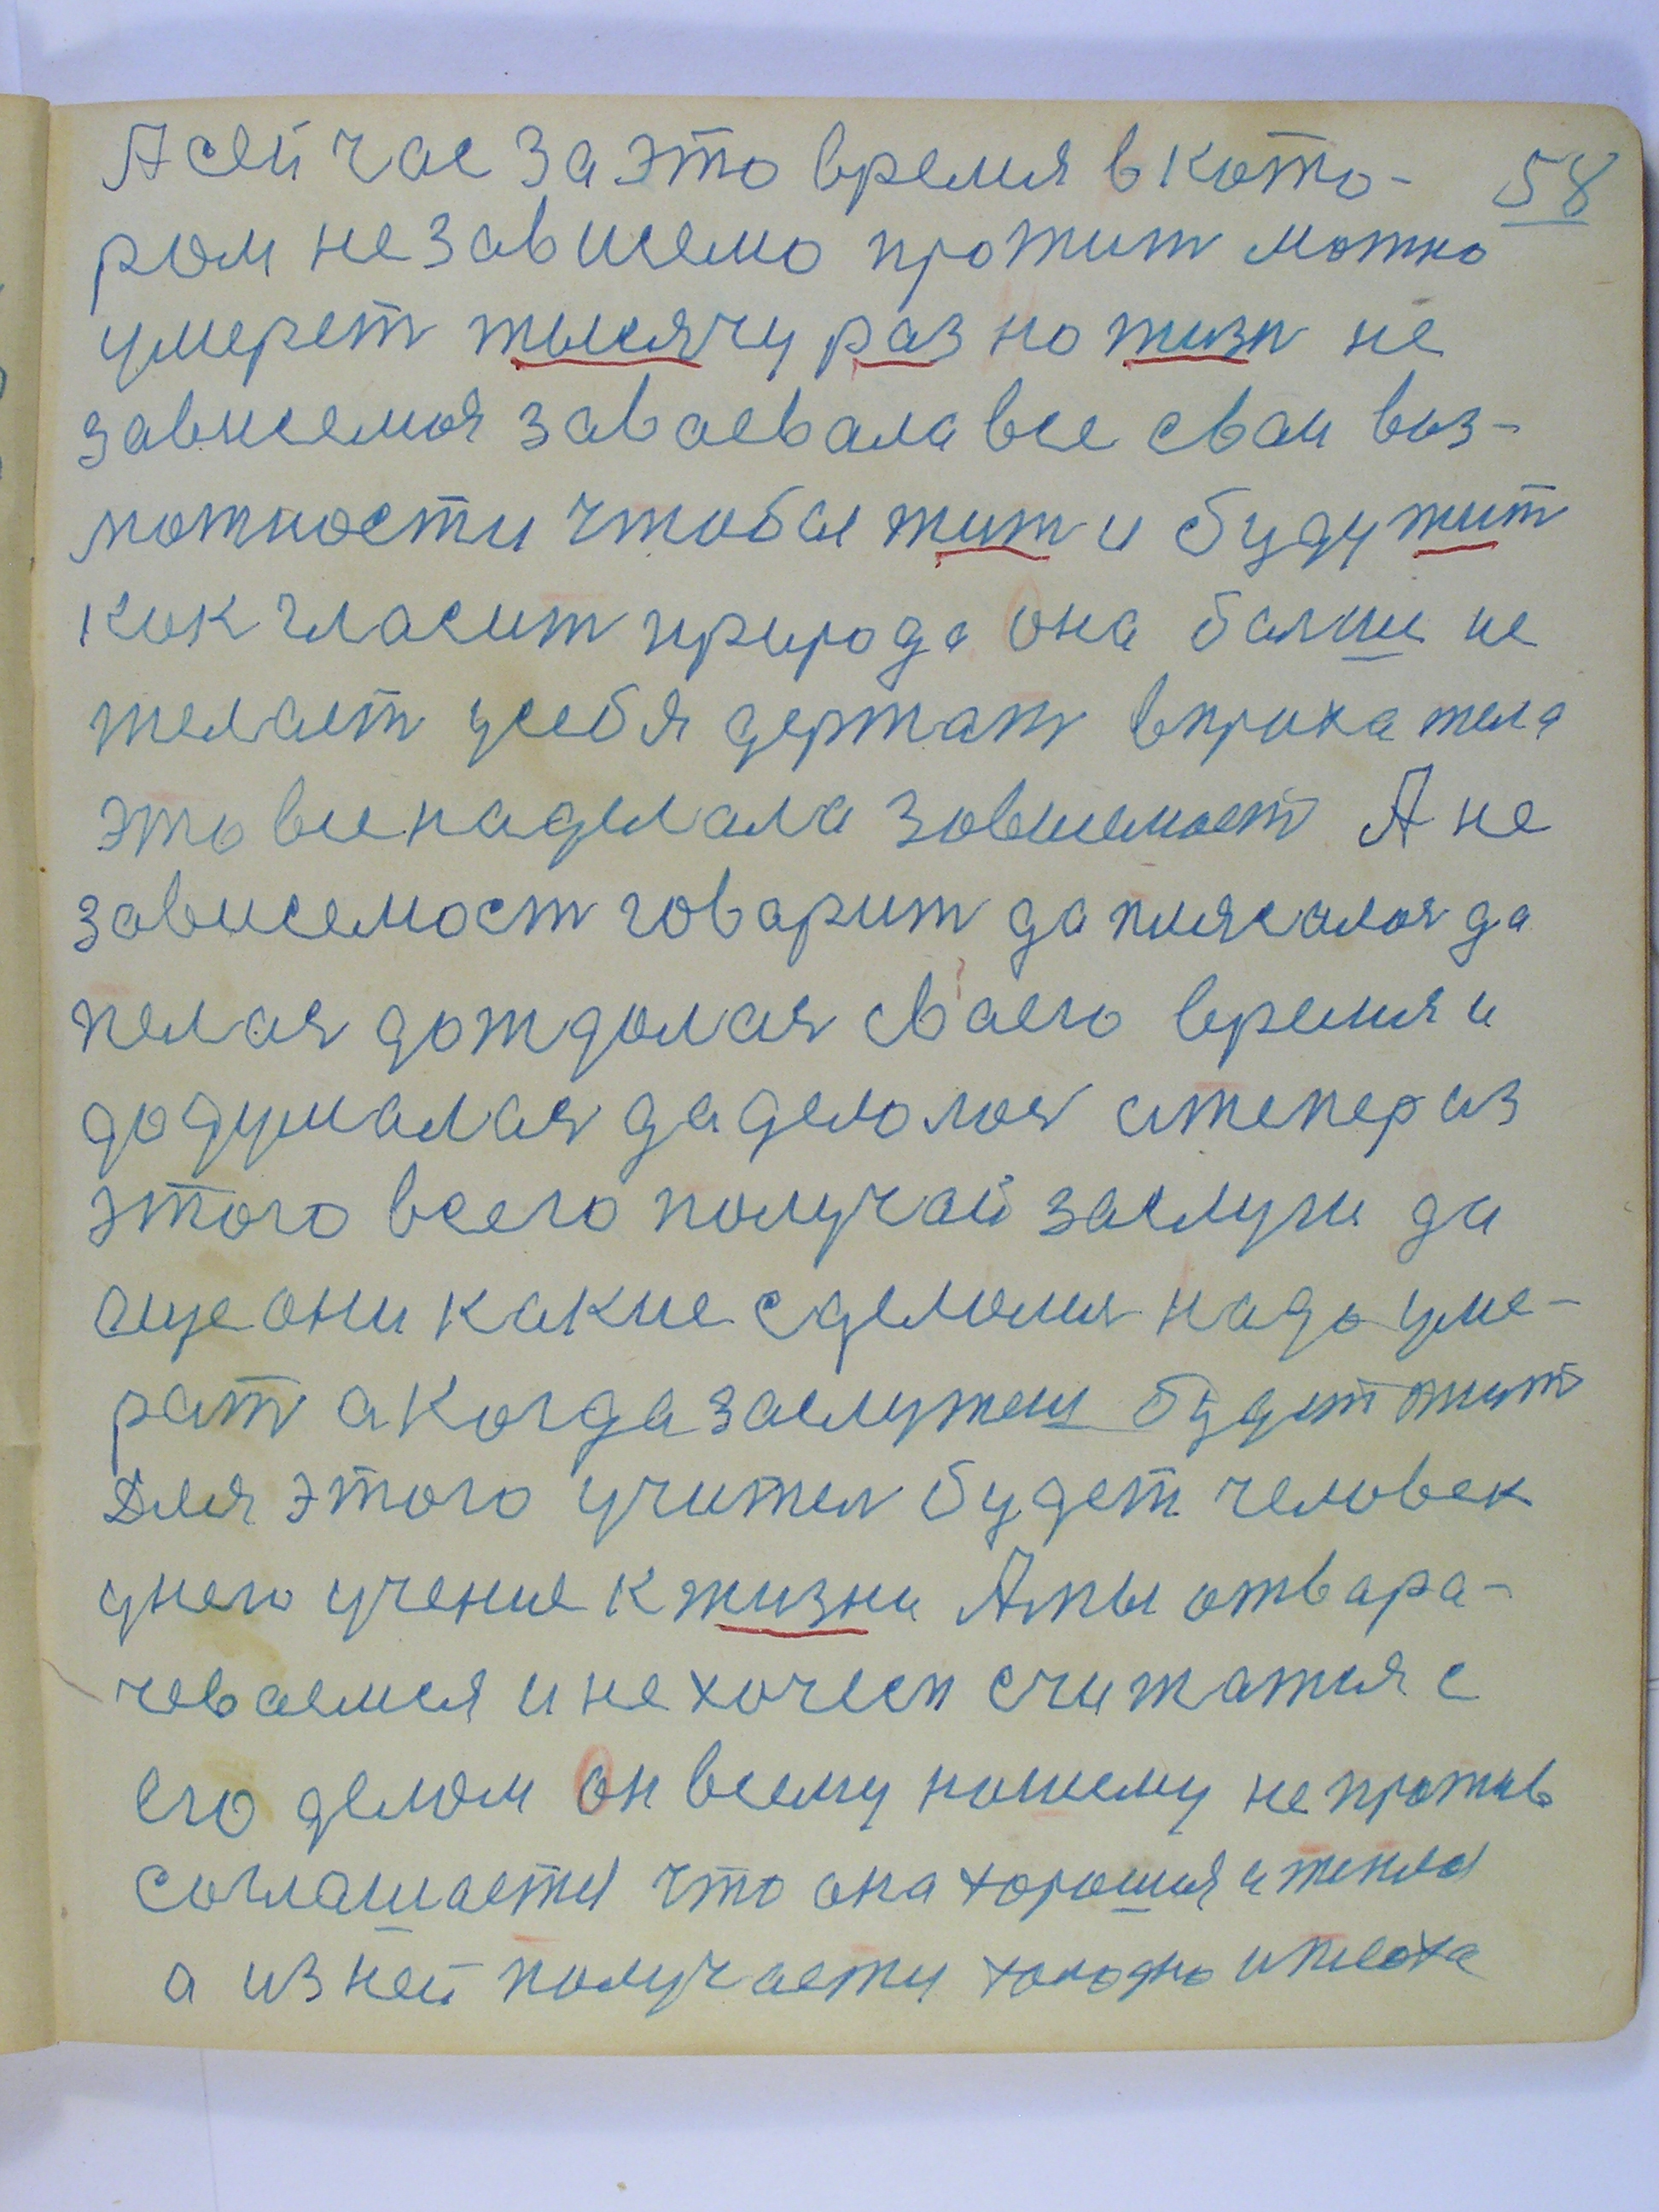 А сей час за это время в кото- 58
ром не зависемо прожит можно
умерет тысячу раз но жизн не
зависемоя заваевала все сваи воз-
можности чтобы жит и буду жит
как гласит природа она балше не
желает усебя держат впроха тела
это все наделала зависемост А не
зависемост говарит даплясалоя да
пелая дождолая сваего время и
додумалая даделолоя итепер из
этого всего получай заслуги да
еще они какие сделолия надо уме-
рат а когда заслужеш будет жит
Для этого учител будет человек
унего учение к жизни Амы отвара-
чеваемся и не хочем считатся с
его делом он всему нашему не против
соглашается что она хорошия и тепла
а из ней получаети холодно и плоха